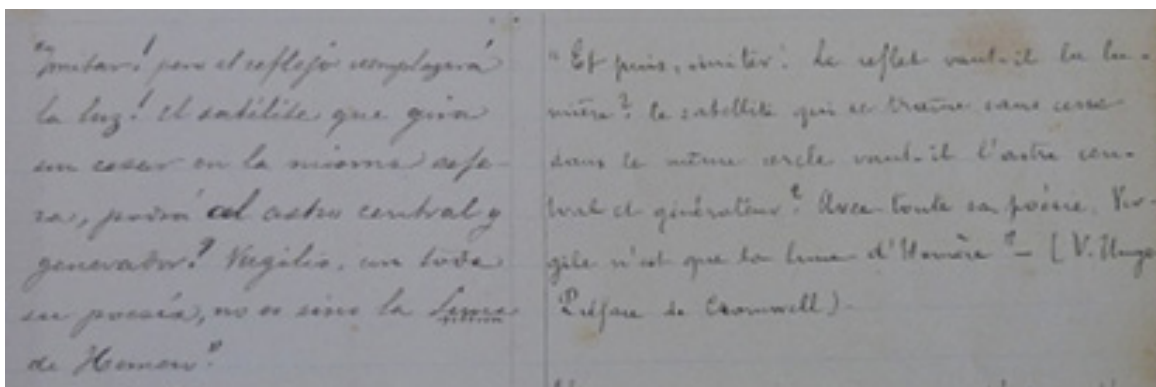 "Imitar! pero el reflejo reemplazará
la luz? El satélite que gira
sin cesar en la misma esfe-
ra, podrá al astro central y
generador? Virgilio, con toda
su poesía, no es sino la luna
de Homero"
"Et puis, imiter! Le reflet vaut-il la lu-
mière? le satellite qui se traîne sans cesse
dans le même cercle vaut-il l'astre cen-
tral et générateur? Avec toute sa poésie, Vir-
gile n'est que la lune d'Homère" – (V. Hugo
Préface de Cromwell).-